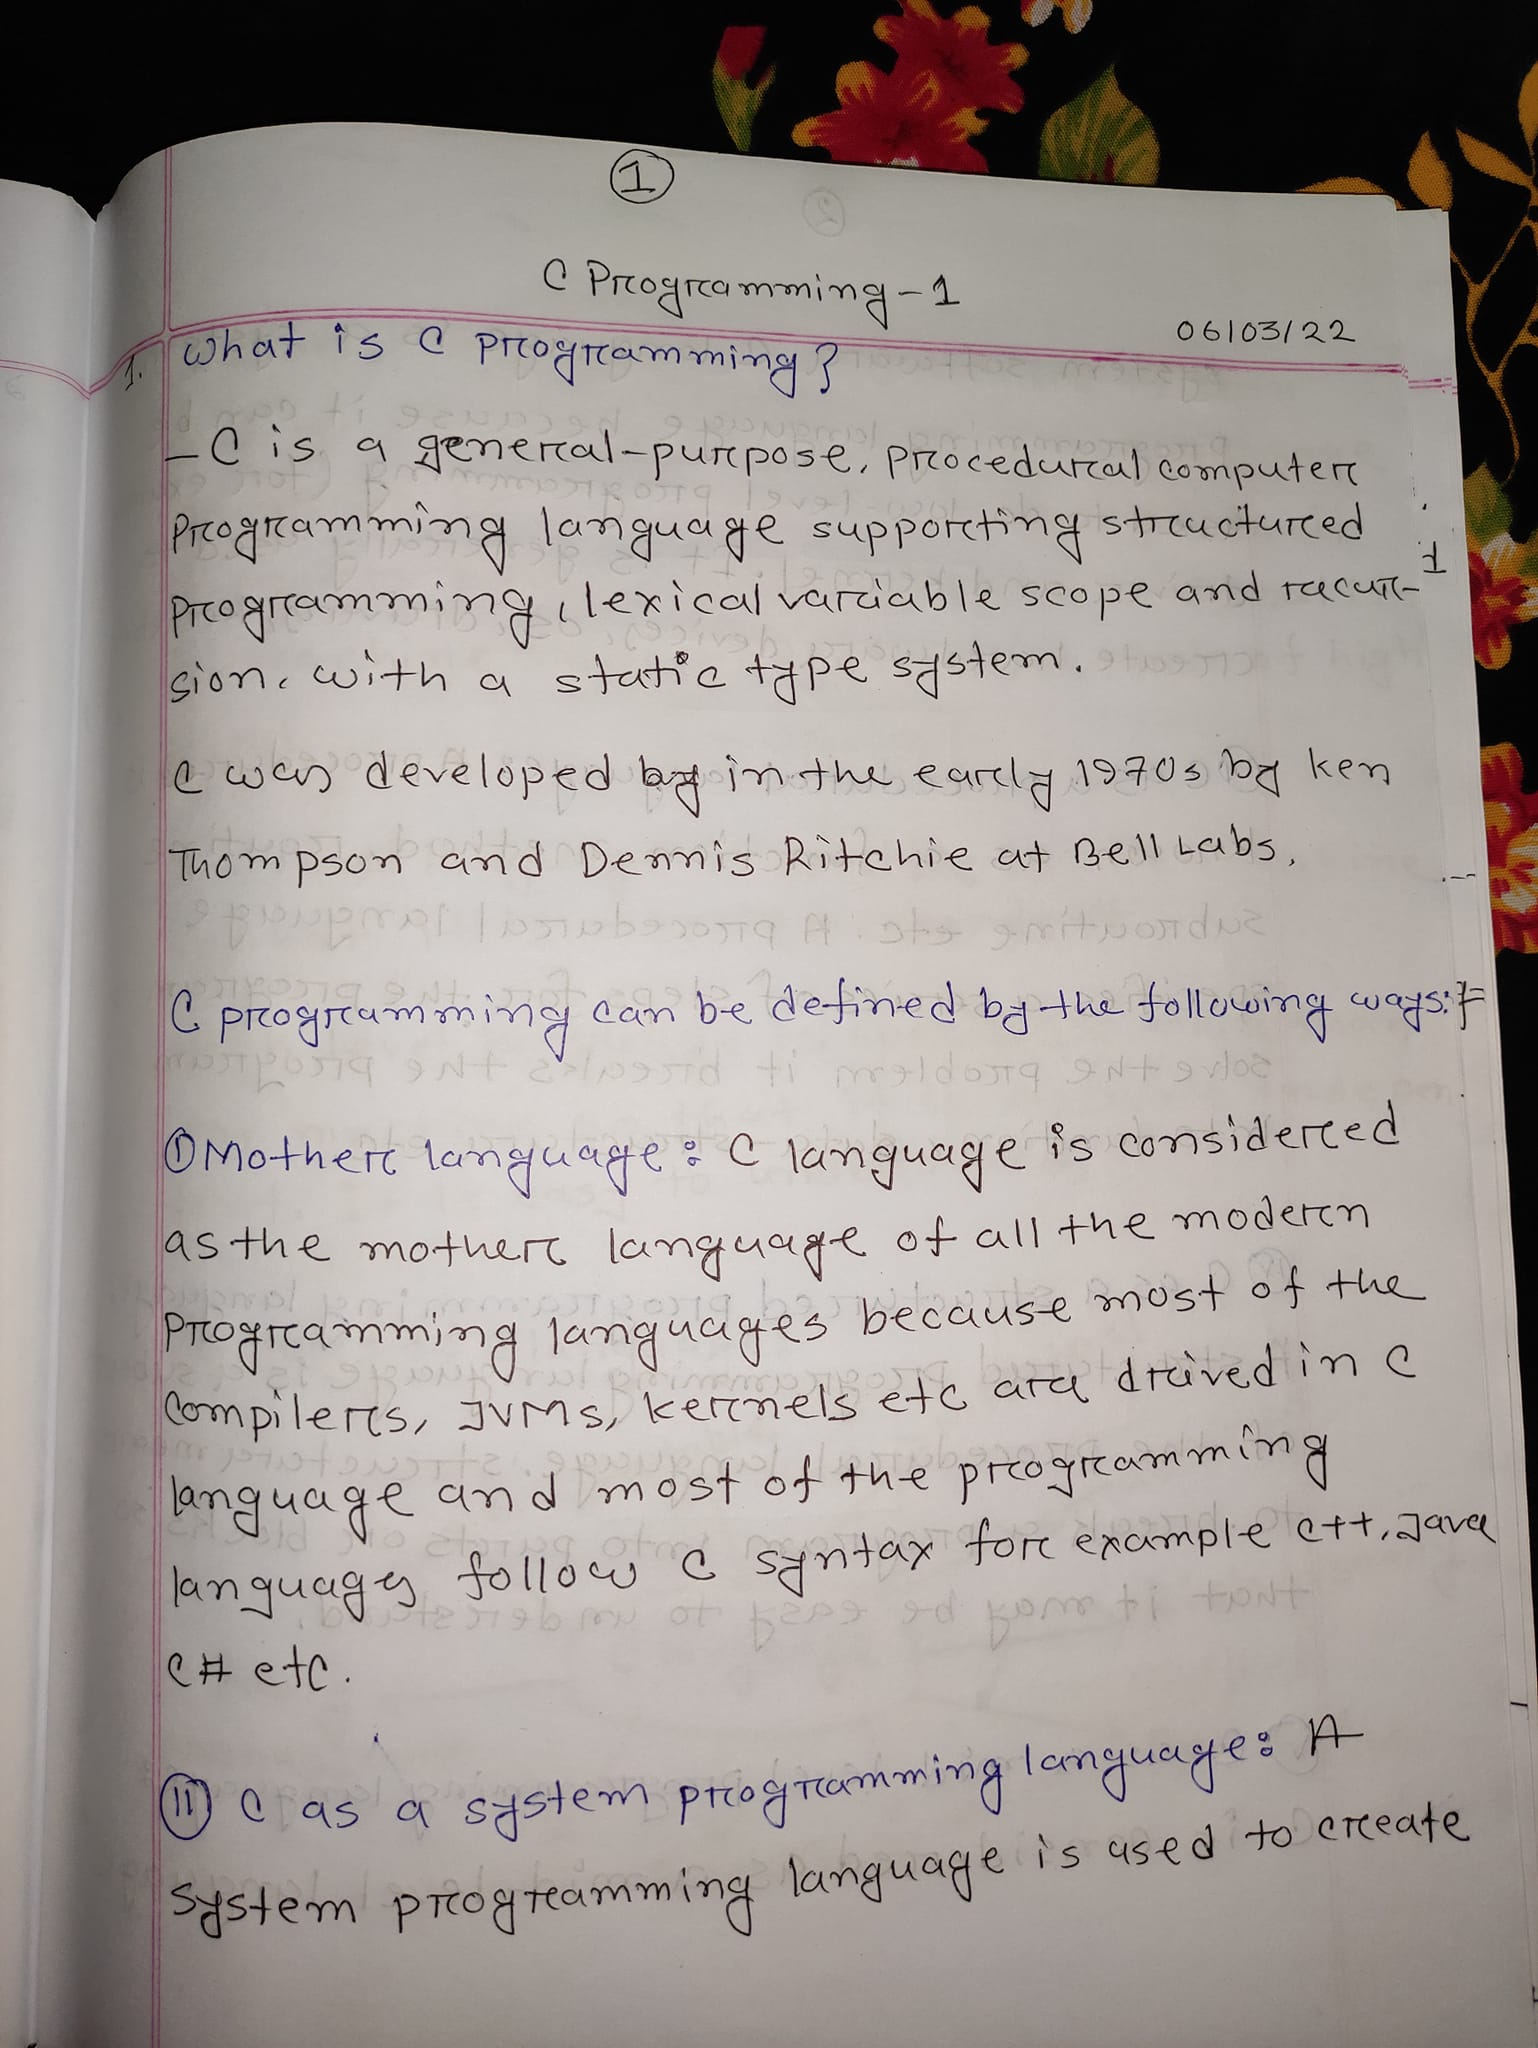 1
C Programming-1
06/03/22
1. What is C programming?
- C is a general-purpose, procedural computer
programming language supporting structured
programming, lexical variable scope and recur-
sion, with a static type system.
C was developed by in the early 1970s by Ken
Thompson and Dennis Ritchie at Bell Labs.
C programming can be defined by the following ways:-
(I) Mother language: C language is considered
as the mother language of all the modern
programming languages because most of the
compilers, JVMs, kernels etc are drived in C
language and most of the programming
languages follow C syntax for example C++, Java
C# etc.
(II) C as a system programming language: A
system programming language is used to create